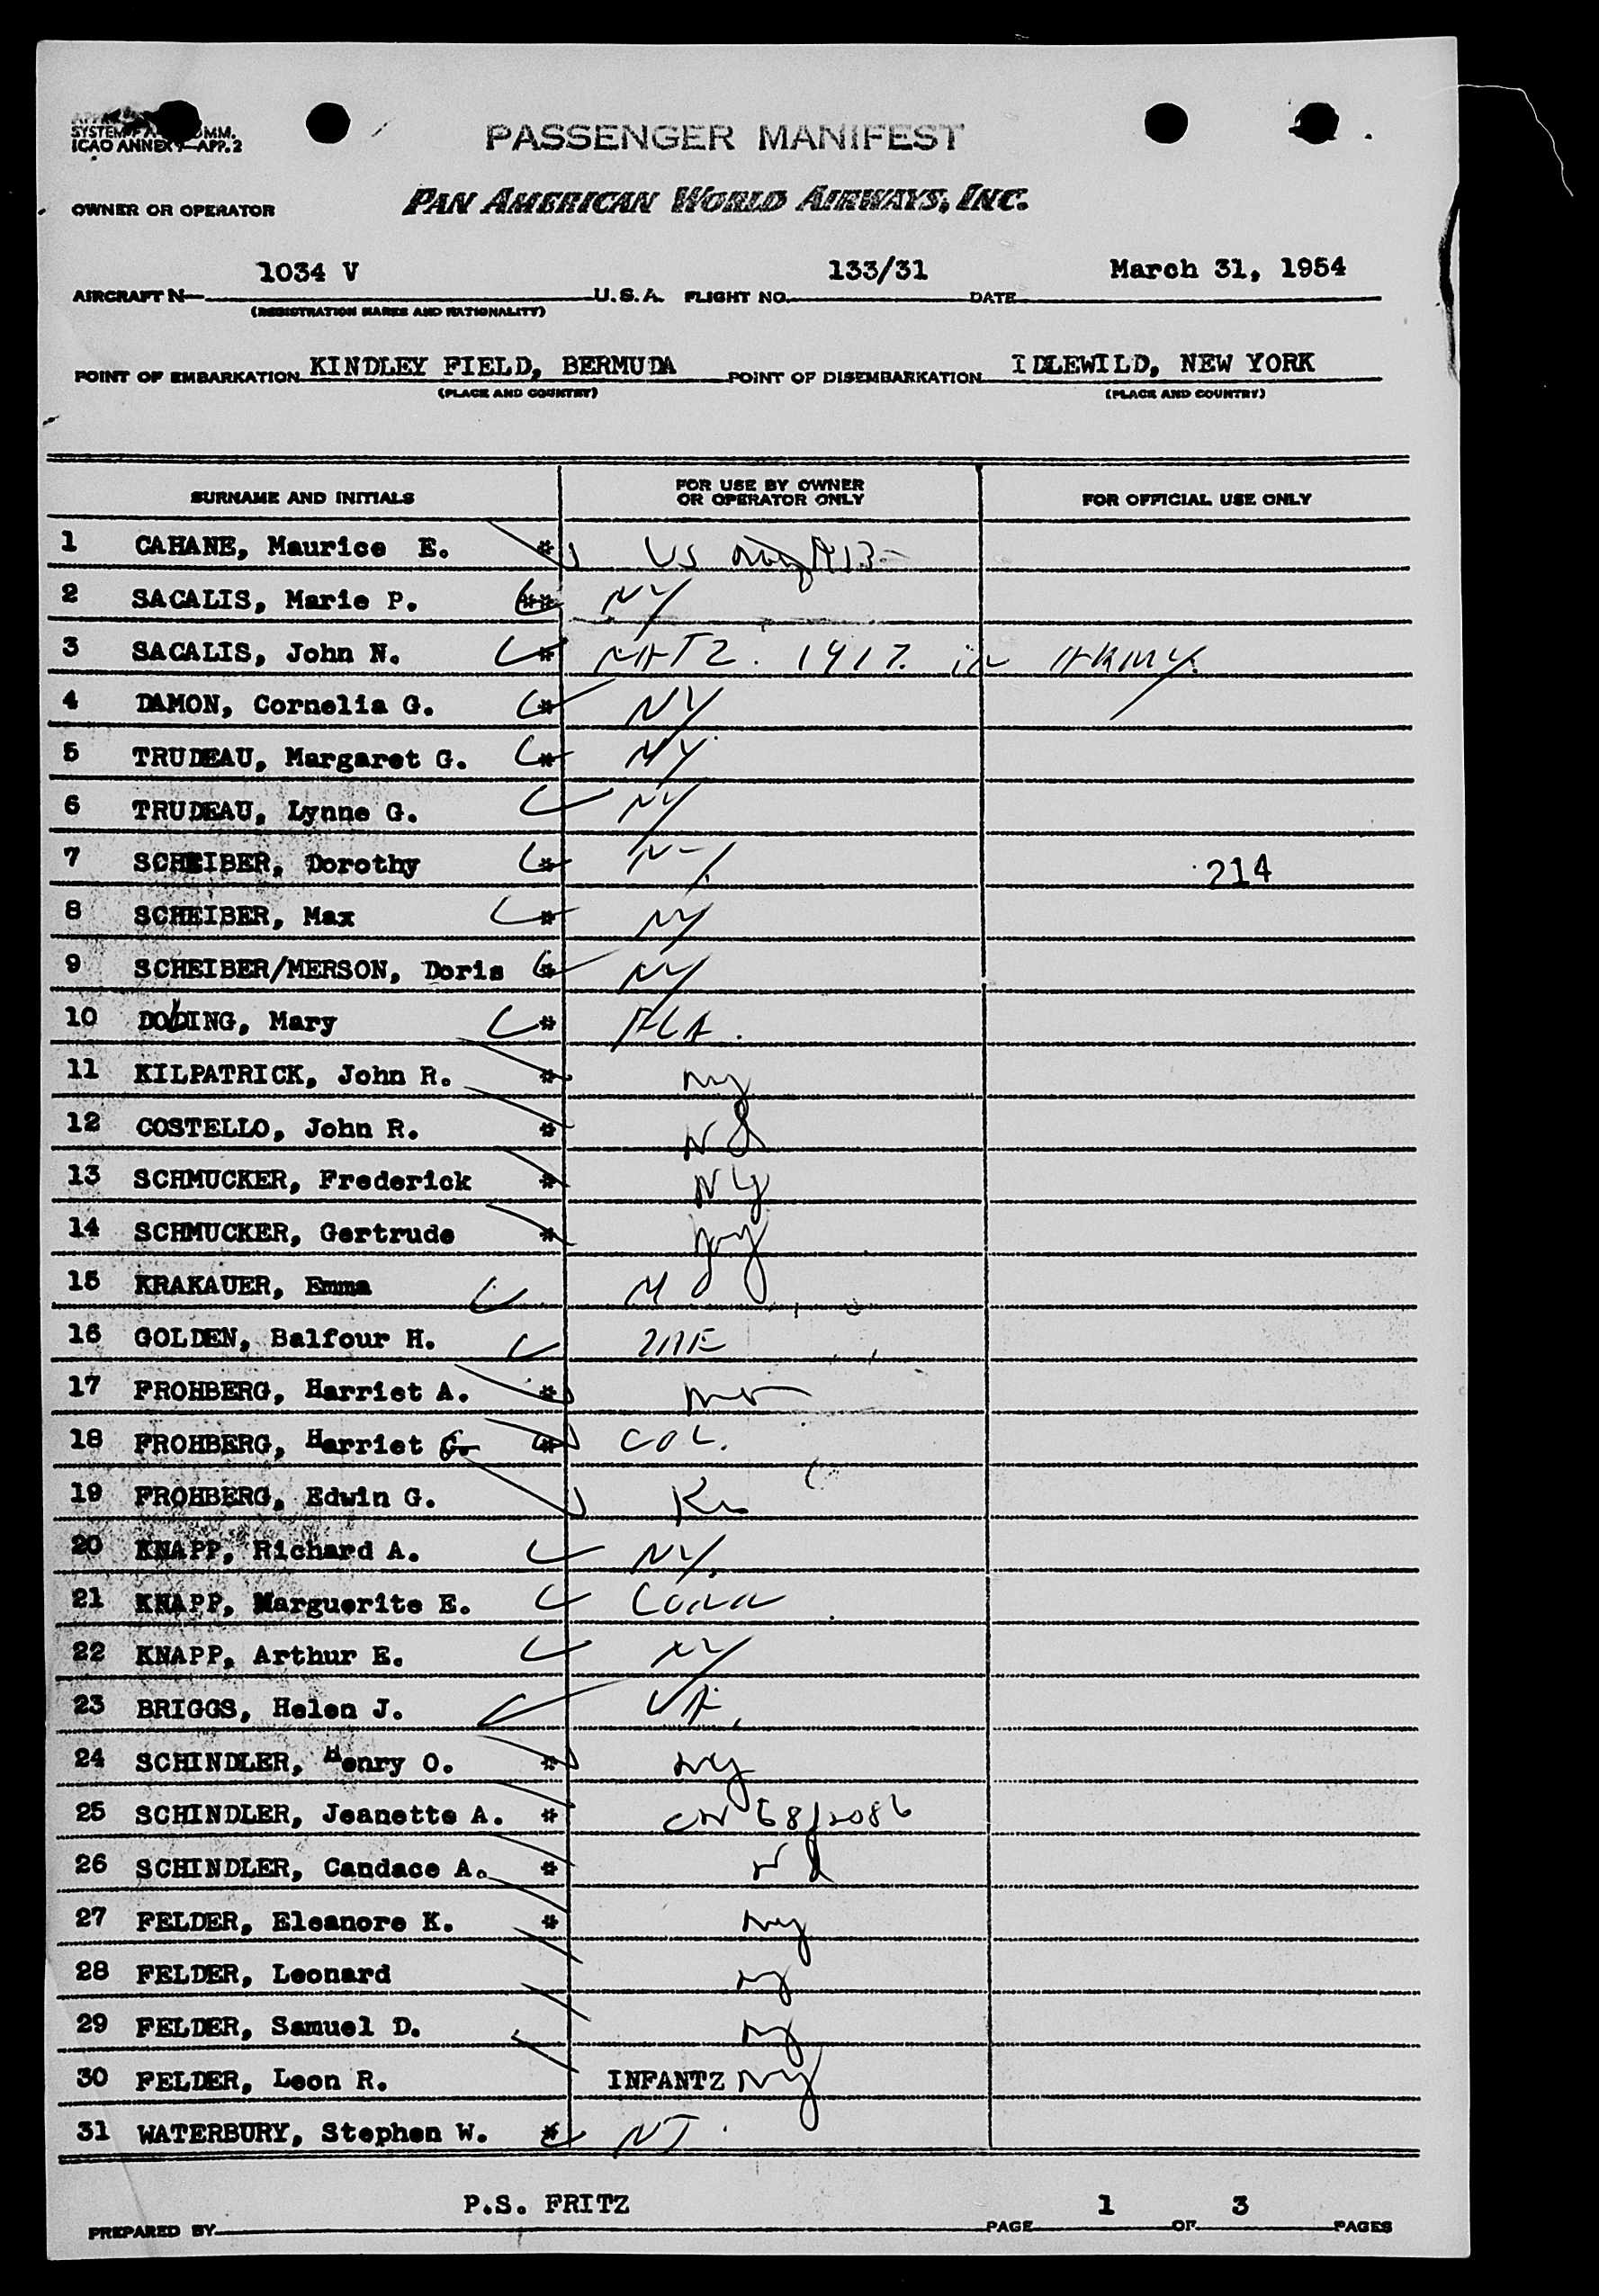 SYSTEM
ICAO ANNEX 9—APP. 2
PASSENGER MANIFEST
OWNER OR OPERATOR PAN AMERICAN WORLD AIRWAYS, INC.
AIRCRAFT N— 1034 V U.S.A. FLIGHT NO. 133/31 DATE March 31, 1954
(REGISTRATION MARKS AND NATIONALITY)
POINT OF EMBARKATION KINDLEY FIELD, BERMUDA POINT OF DISEMBARKATION IDLEWILD, NEW YORK
(PLACE AND COUNTRY) (PLACE AND COUNTRY)
SURNAME AND INITIALS FOR USE BY OWNER OR OPERATOR ONLY FOR OFFICIAL USE ONLY
1 CAHANE, Maurice E. * US
2 SACALIS, Marie P. ** NY
3 SACALIS, John N. * NATZ. 1917. in ARMY.
4 DAMON, Cornelia G. * NY
5 TRUDEAU, Margaret G. * NY
6 TRUDEAU, Lynne G. NY
7 SCHEIBER, Dorothy * NY 214
8 SCHEIBER, Max * NY
9 SCHEIBER/MERSON, Doris * NY
10 DOLDING, Mary * FLA.
11 KILPATRICK, John R. * ny
12 COSTELLO, John R. * NJ
13 SCHMUCKER, Frederick * Ny
14 SCHMUCKER, Gertrude * ny
15 KRAKAUER, Emma
16 GOLDEN, Balfour H. ME
17 FROHBERG, Harriet A. * mo
18 FROHBERG, Harriet G. * COL.
19 FROHBERG, Edwin G.
20 KNAPP, Richard A. NY.
21 KNAPP, Marguerite E. Conn
22 KNAPP, Arthur E. NY
23 BRIGGS, Helen J. VA.
24 SCHINDLER, Henry O. * ny
25 SCHINDLER, Jeanette A. * CN 68/2086
26 SCHINDLER, Candace A. * NJ
27 FELDER, Eleanore K. * ny
28 FELDER, Leonard ny
29 FELDER, Samuel D. ny
30 FELDER, Leon R. INFANTZ ny
31 WATERBURY, Stephen W. * NJ
PREPARED BY P.S. FRITZ PAGE 1 OF 3 PAGES